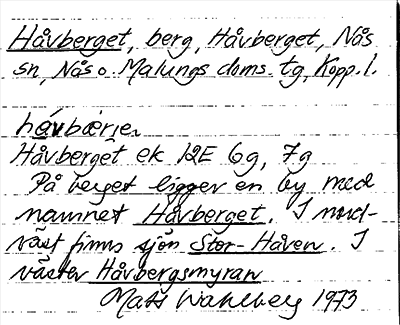 Håvberget, berg, Håvberget, Nås
sn, Nås o. Malungs doms. tg, Kopp. l.
håvbærje
Håvberget ek 12E 6g, 7g
På berget ligger en by med
namnet Håvberget. I nord-
väst finns sjön Stor-Håven. I
väster Håvbergsmyran
Mats Wahlberg 1973